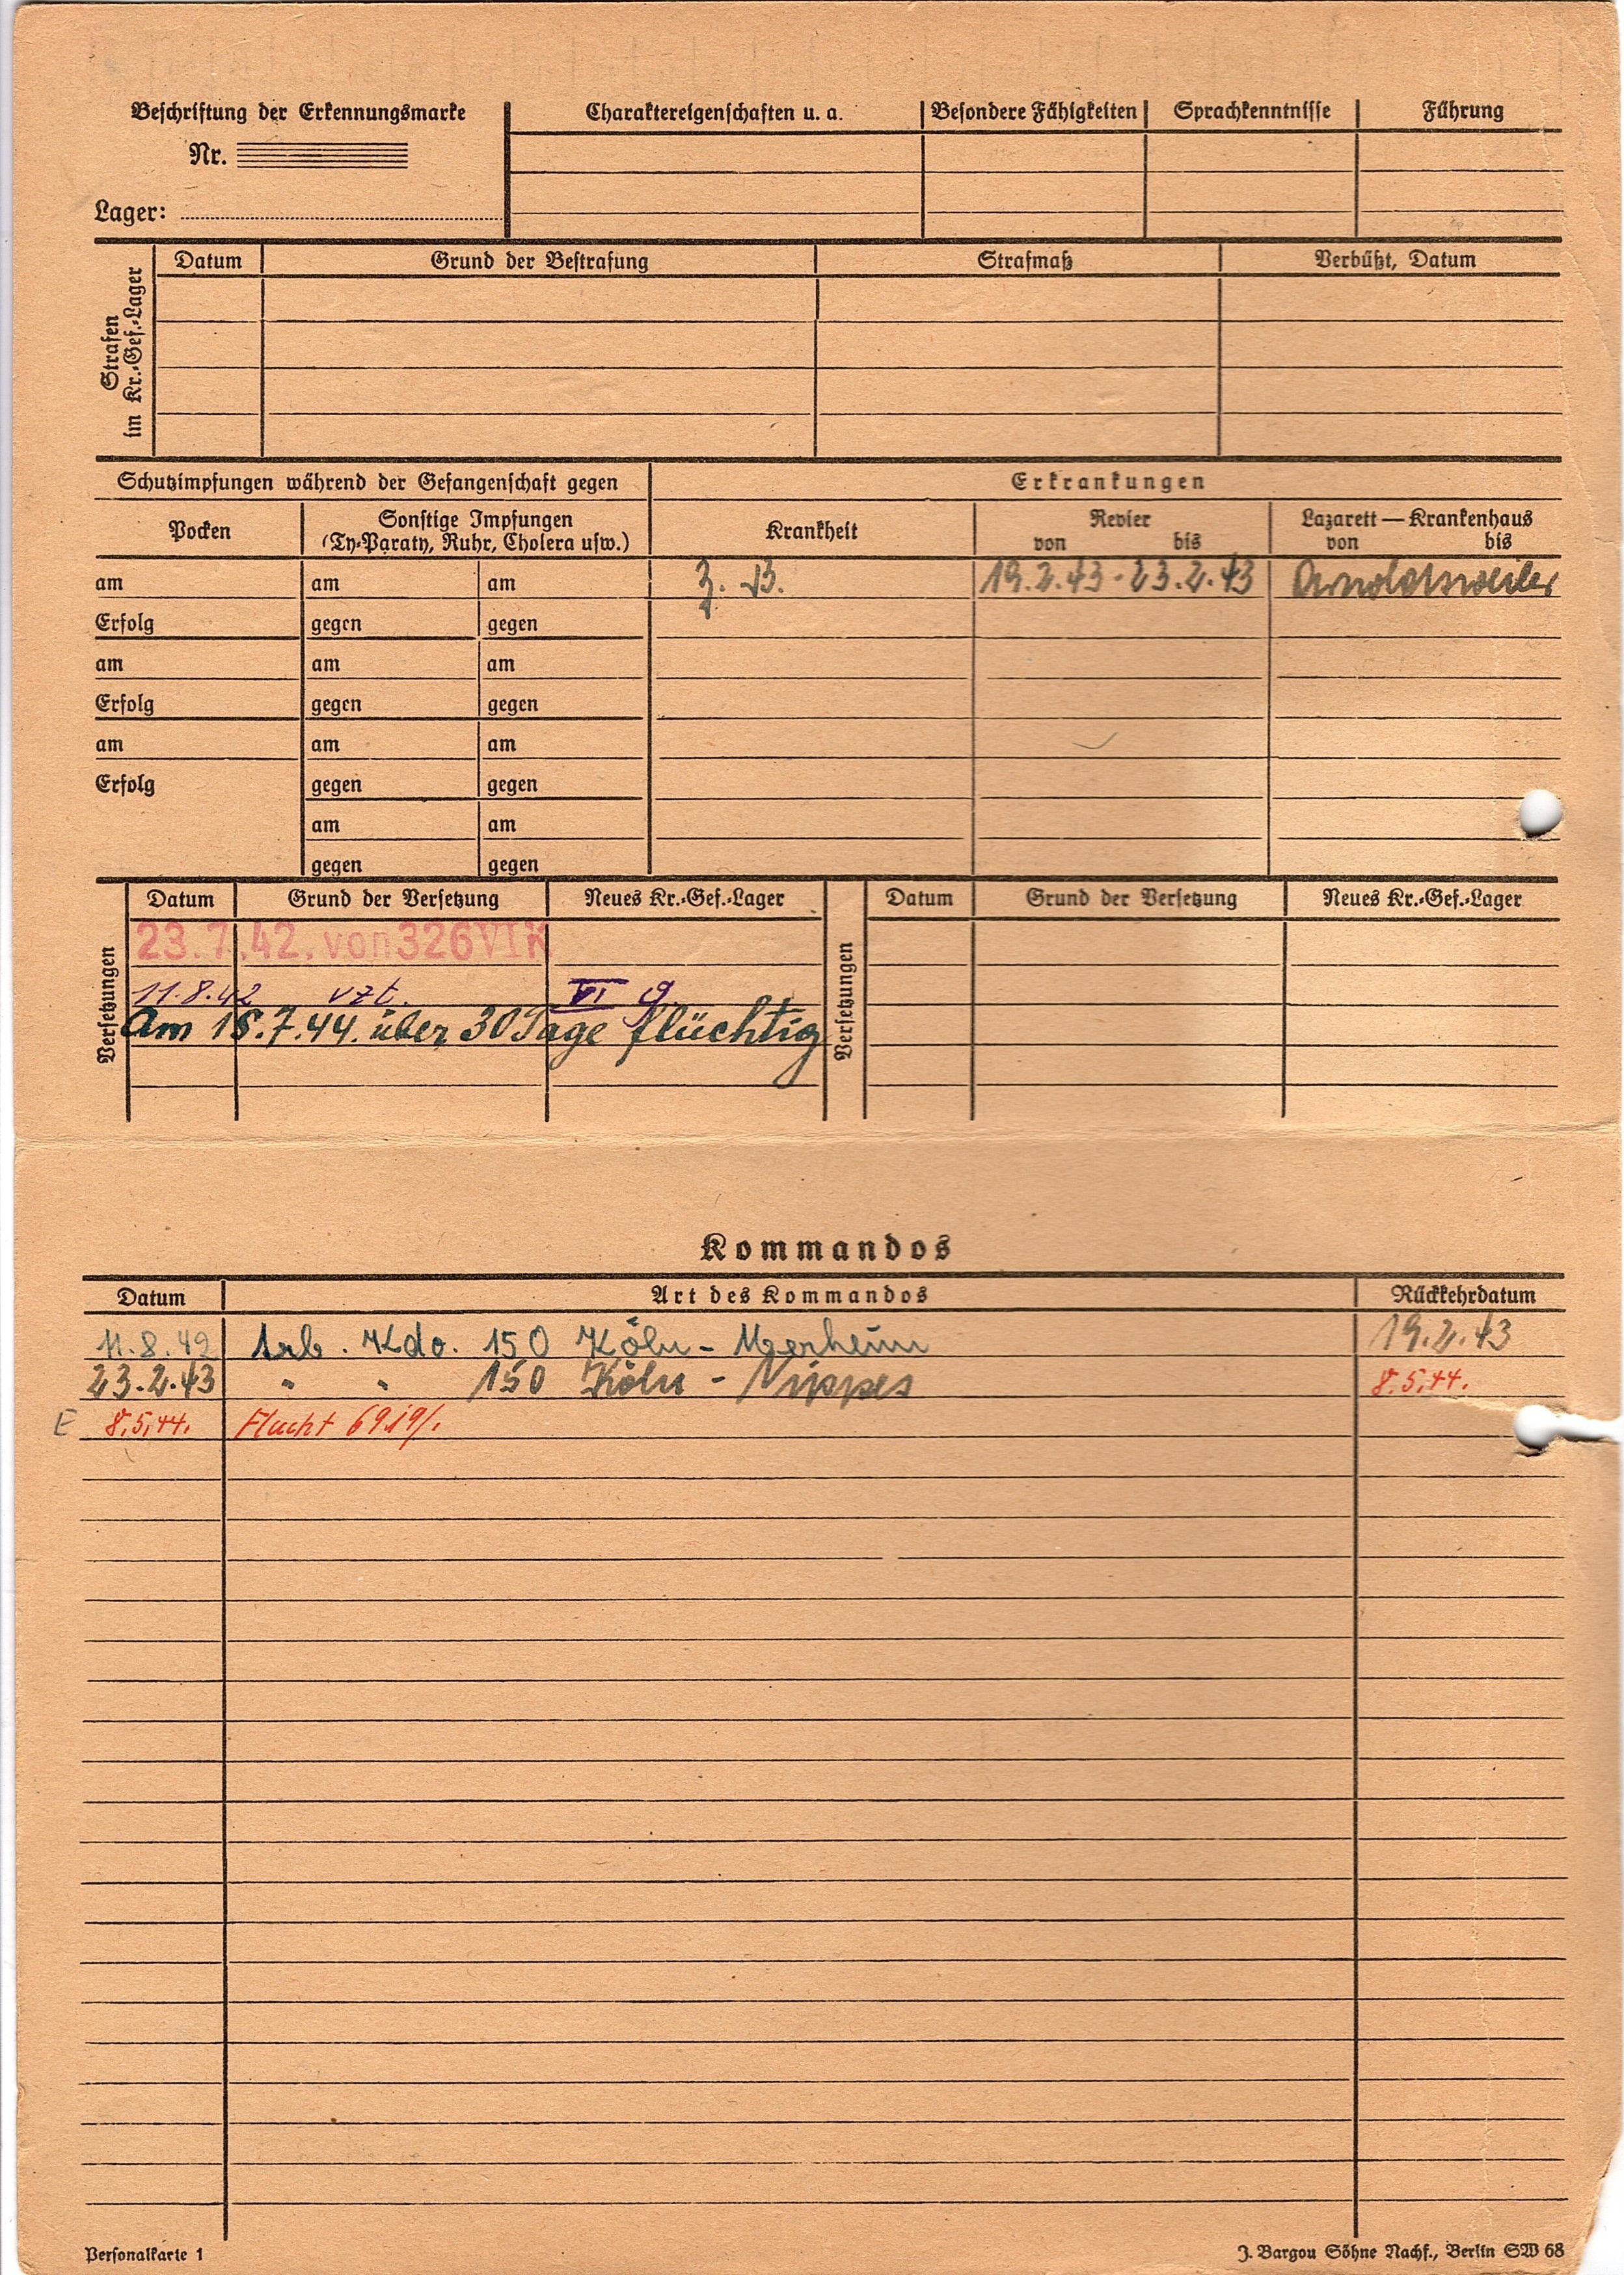 Beschriftung der Erkennungsmarke
Nr.
Lager:
Charaktereigenschaften u. a.
Besondere Fähigkeiten
Sprachkenntnisse
Führung
Strafen
im Kr.-Gef.-Lager
Datum
Grund der Bestrafung
Strafmaß
Verbüßt, Datum
Schutzimpfungen während der Gefangenschaft gegen
Erkrankungen
Pocken
Sonstige Impfungen
(Ty-Paraty, Ruhr, Cholera usw.)
Krankheit
Revier
von bis
Lazarett — Krankenhaus
von bis
am am am
z. B. 19.2.43 - 23.2.43 Arnoldsweiler
Erfolg gegen gegen
am am am
Erfolg gegen gegen
am am am
Erfolg gegen gegen
am am
gegen gegen
Versetzungen
Datum Grund der Versetzung Neues Kr.-Gef.-Lager
23.7.42. von 326 VI K
11.8.42 vzt. VI g
Am 18.7.44. über 30 Tage flüchtig
Versetzungen
Datum Grund der Versetzung Neues Kr.-Gef.-Lager
Kommandos
Datum Art des Kommandos Rückkehrdatum
11.8.42 Arb. Kdo. 150 Köln - Merheim 19.2.43
23.2.43 " " 150 Köln - Nippes 8.5.44.
E 8.5.44. Flucht
Personalkarte 1
J. Bargou Söhne Nachf., Berlin SW 68